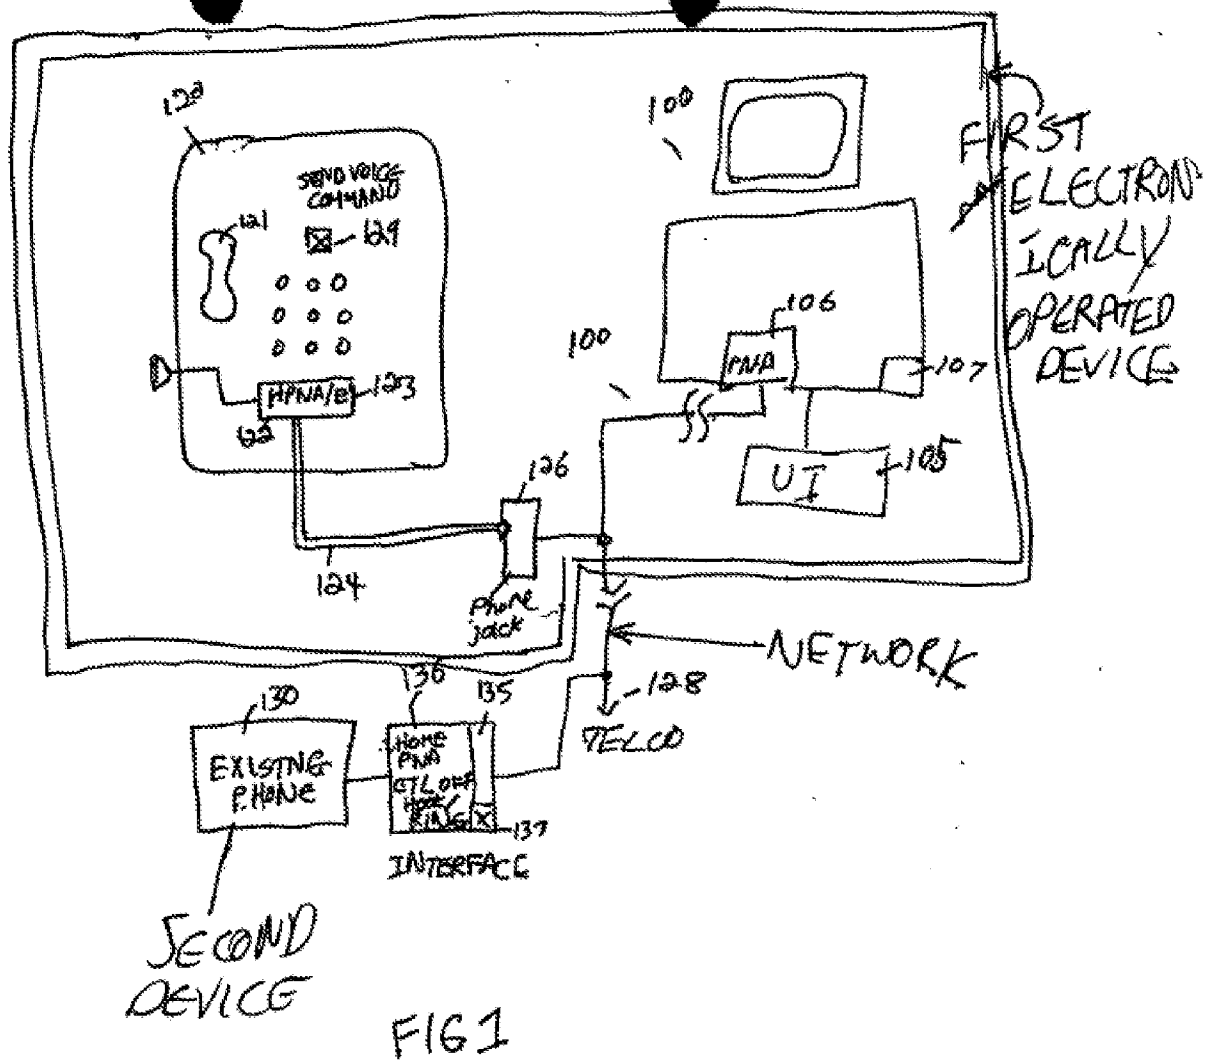 120
SEND VOICE
COMMAND
121
129
HPNA/E
123
122
124
126
Phone
jack
100
100
106
PNA
107
UI
105
FIRST
ELECTRON
ICALLY
OPERATED
DEVICE
NETWORK
128
TELCO
130
EXISTNG
PHONE
136
135
HOME
PNA
CTL OFF
HOOK/
RING
X
137
INTERFACE
SECOND
DEVICE
FIG 1